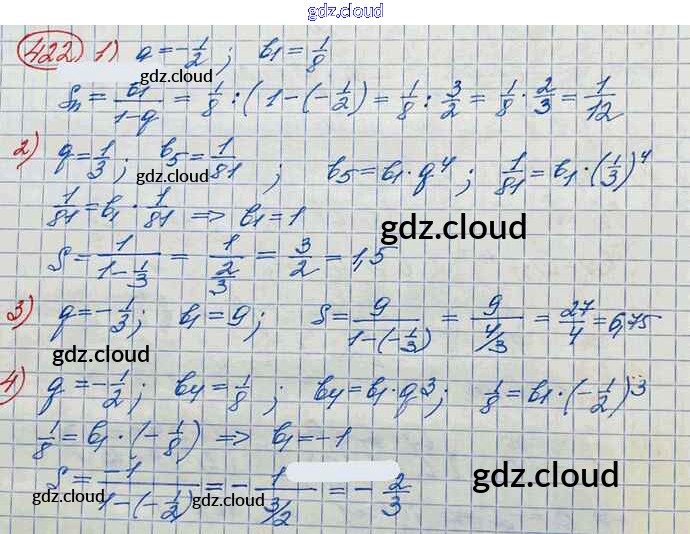 gdz.cloud
gdz.cloud
422) 1) q = -1/2 ; b₁ = 1/8
gdz.cloud
Sₙ = b₁/(1-q) = 1/8 : (1-(-1/2) = 1/8 : 3/2 = 1/8 · 2/3 = 1/12
2) q = 1/3 ; b₅ = 1/81 ; b₅ = b₁ · q⁴ ; 1/81 = b₁ · (1/3)⁴
gdz.cloud
1/81 = b₁ · 1/81 => b₁ = 1
gdz.cloud
S = 1/(1-1/3) = 1/(2/3) = 3/2 = 1,5
3) q = -1/3 ; b₁ = 9 ; S = 9/(1-(-1/3)) = 9/(4/3) = 27/4 = 6,75
gdz.cloud
gdz.cloud
4) q = -1/2 ; b₄ = 1/8 ; b₄ = b₁ · q³ ; 1/8 = b₁ · (-1/2)³
1/8 = b₁ · (-1/8) => b₁ = -1
S = -1/(1-(-1/2)) = -1/(3/2) = -2/3
gdz.cloud
gdz.cloud